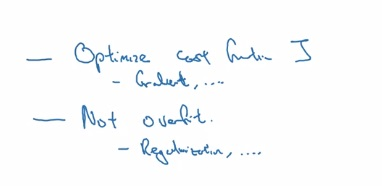 — Optimize cost function J
- Gradient, ....
— Not overfit.
- Regularization, ....